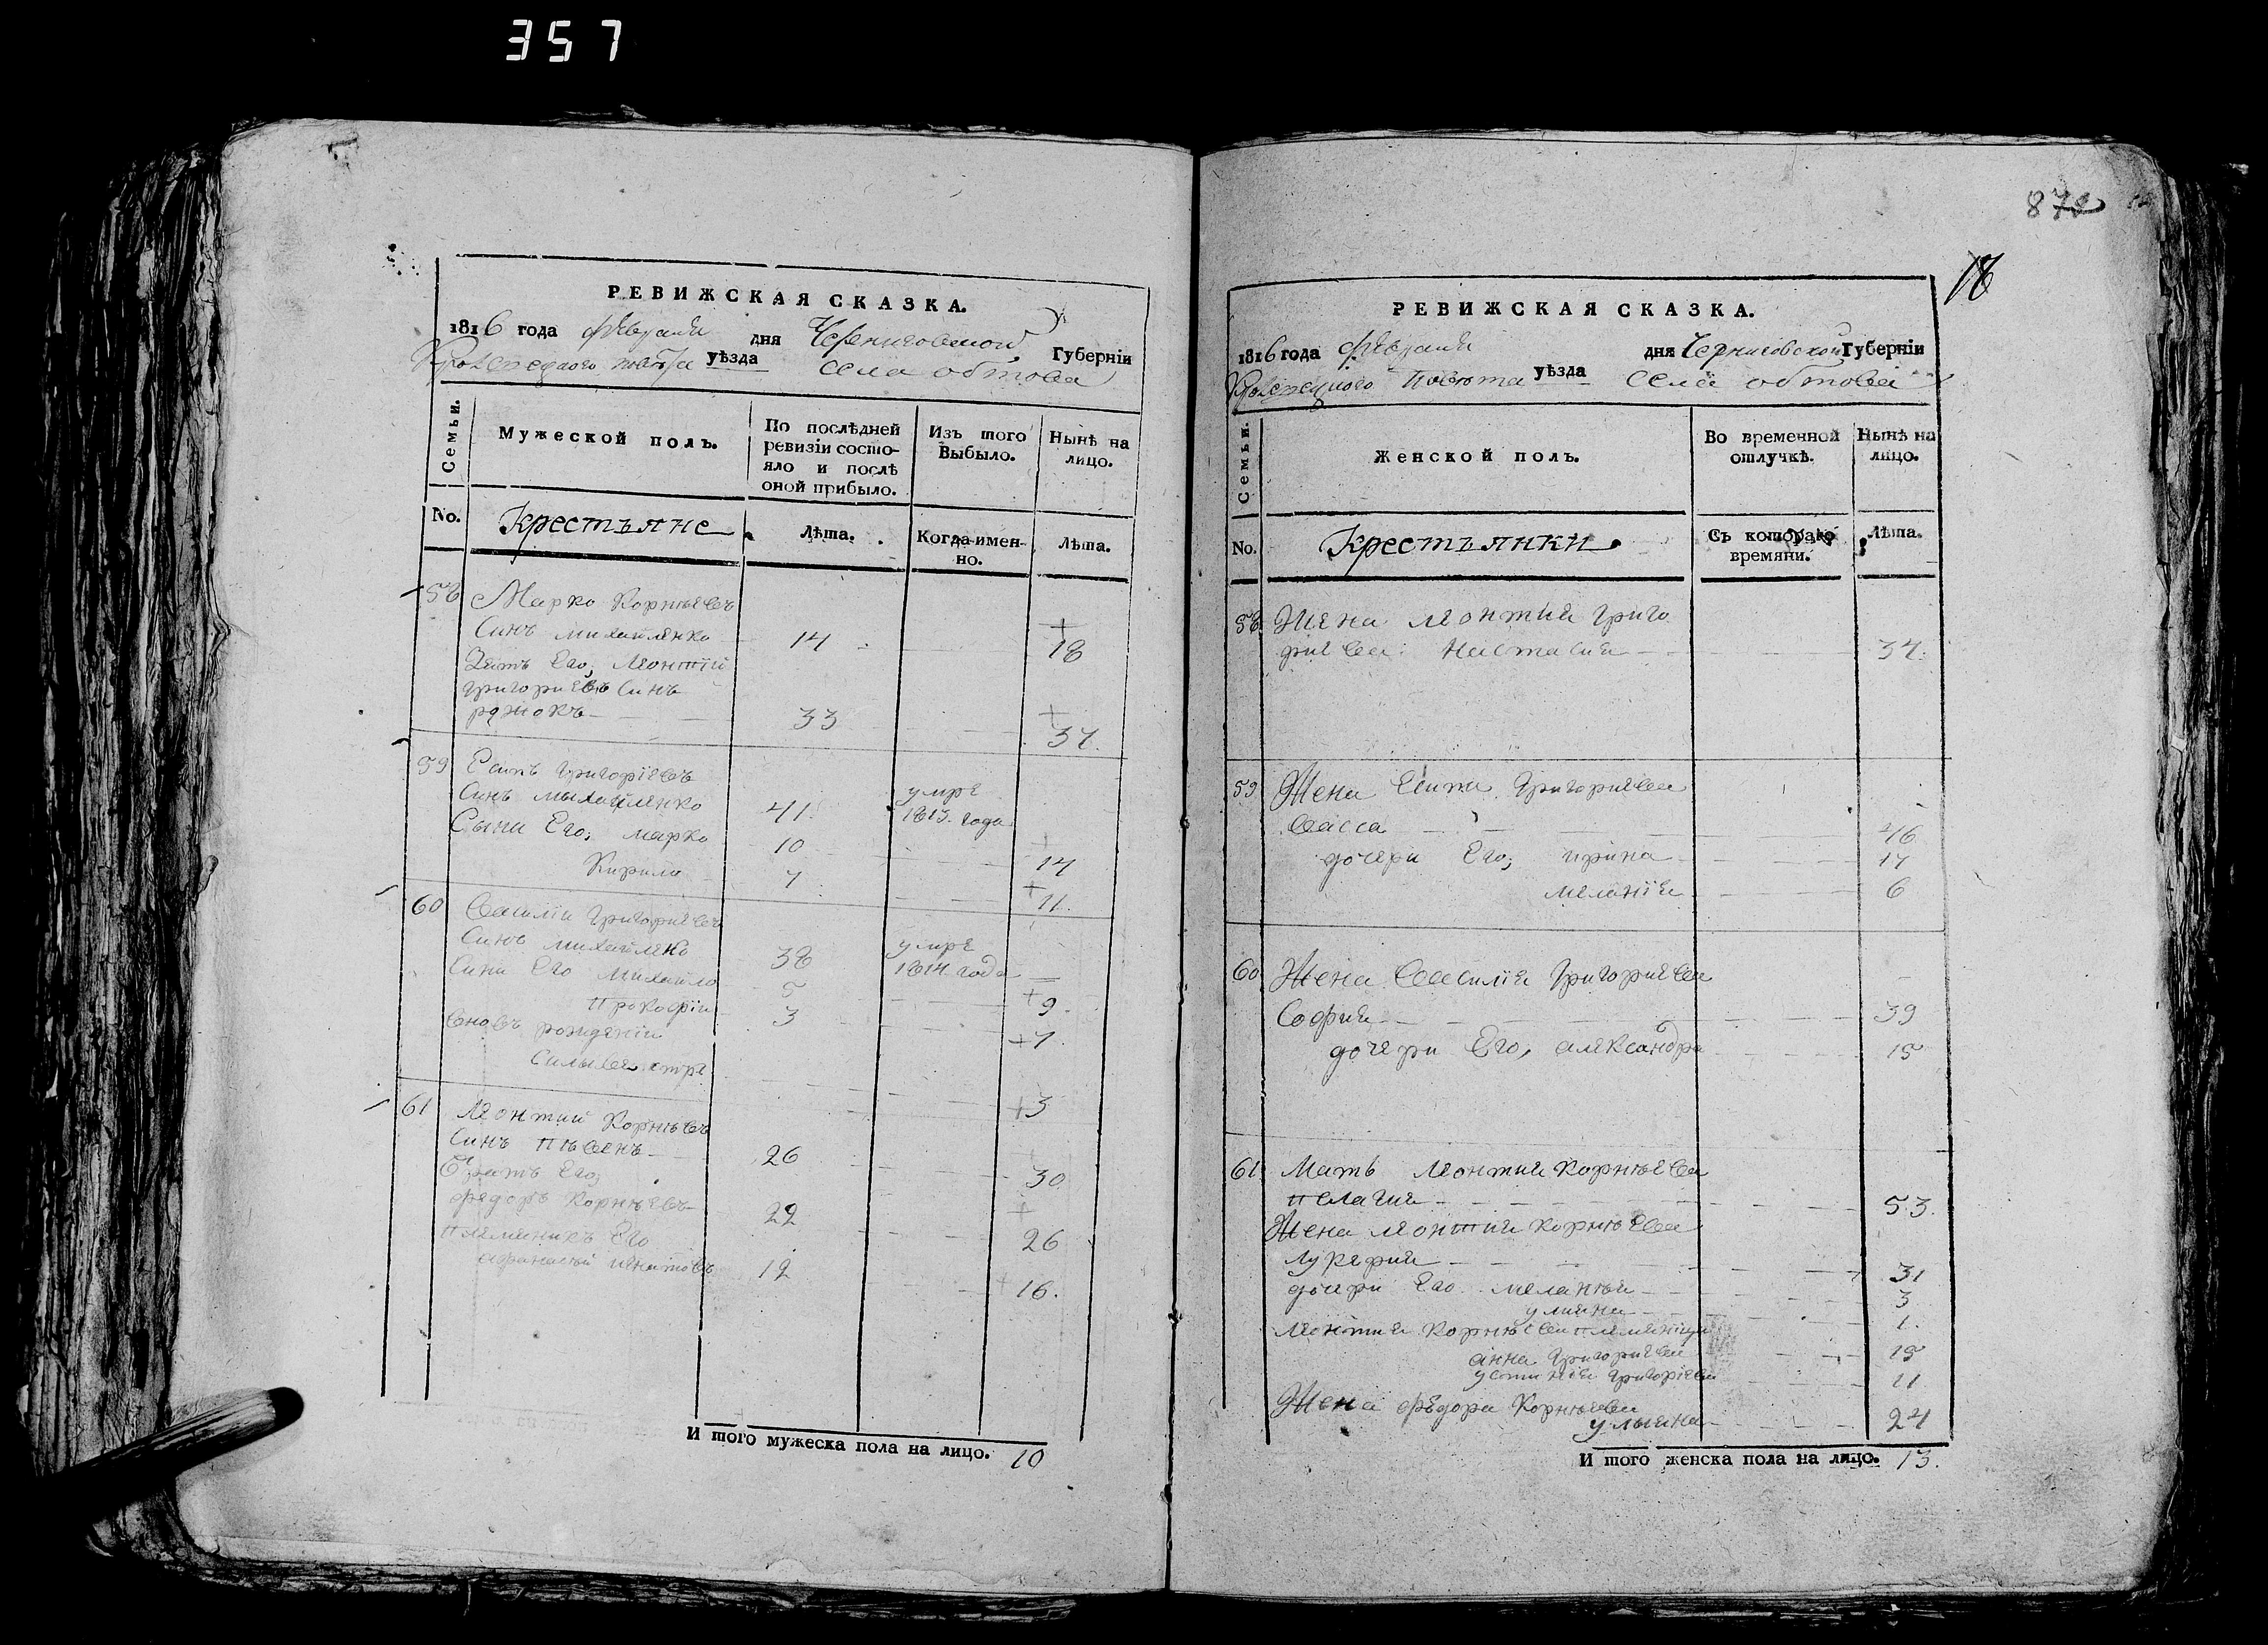 357
РЕВИЖСКАЯ СКАЗКА.
1816 года февраля дня Черниговской Губерніи
Кролевецкого повѣта уѣзда села обтова
Семьи. Мужеской полъ. По послѣдней ревизіи состояло и послѣ оной прибыло. Изъ того Выбыло. Нынѣ на лицо.
No. Крестьяне Лѣта. Когда имен-но. Лѣта.
58 Марко Корнѣевъ
Синъ михайленко 14 18
Зять Его, Леонтій
григориевъ Синъ
рожокъ 33 37.
59 Есипъ Григорієвъ
Синъ михайленко 41 умре 1813. года
Сыни Его, марко 10 14
Кирило 7 11.
60 Василіи Григориевъ
Синъ михайленко 38 умре 1814. года
Сини Его михайло 5 9.
Прокофіи 3 7.
вновь рожденіи
Силивестръ 3
61 Леонтий Корнѣевъ
Синъ пѣвень 26 30
Братъ Его,
федоръ Корнѣевъ 22 26
племяникъ Его
афанасий игнатовъ 12 16.
И того мужеска пола на лицо. 10
872
18
РЕВИЖСКАЯ СКАЗКА.
1816 года февраля дня Черниговской Губерніи
Кролевецкого Повѣта уѣзда села обтова
Семьи. Женской полъ. Во временной отлучкѣ. Нынѣ на лицо.
No. Крестьянки Съ котораго времяни. Лѣта.
58 Жена леонтия григо
риева Настасия 37.
59 Жена Есипа Григориева
Васса 46
дочери Его; ирина 17
меланія 6
60 Жена Василія Григориева
София 39
дочери Его, александра 15
61 Мать Леонтия корнѣева
пелагия 53.
Жена леонтия корнѣева
лукерия 31
дочери Его меланья 3
улияна 1.
леонтия корнѣева племяници
анна григориева 15
устинія григоріева 11
Жена фѣдора Корнѣева
улияна 24
И того женска пола на лицо. 13.